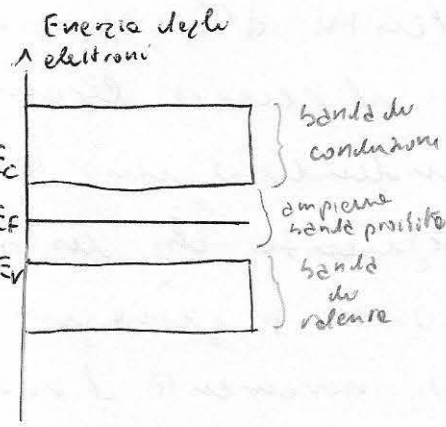 Energia degli
elettroni
banda di
conduzione
Ec
ampiezza
banda proibita
EF
Ev
banda
di
valenza